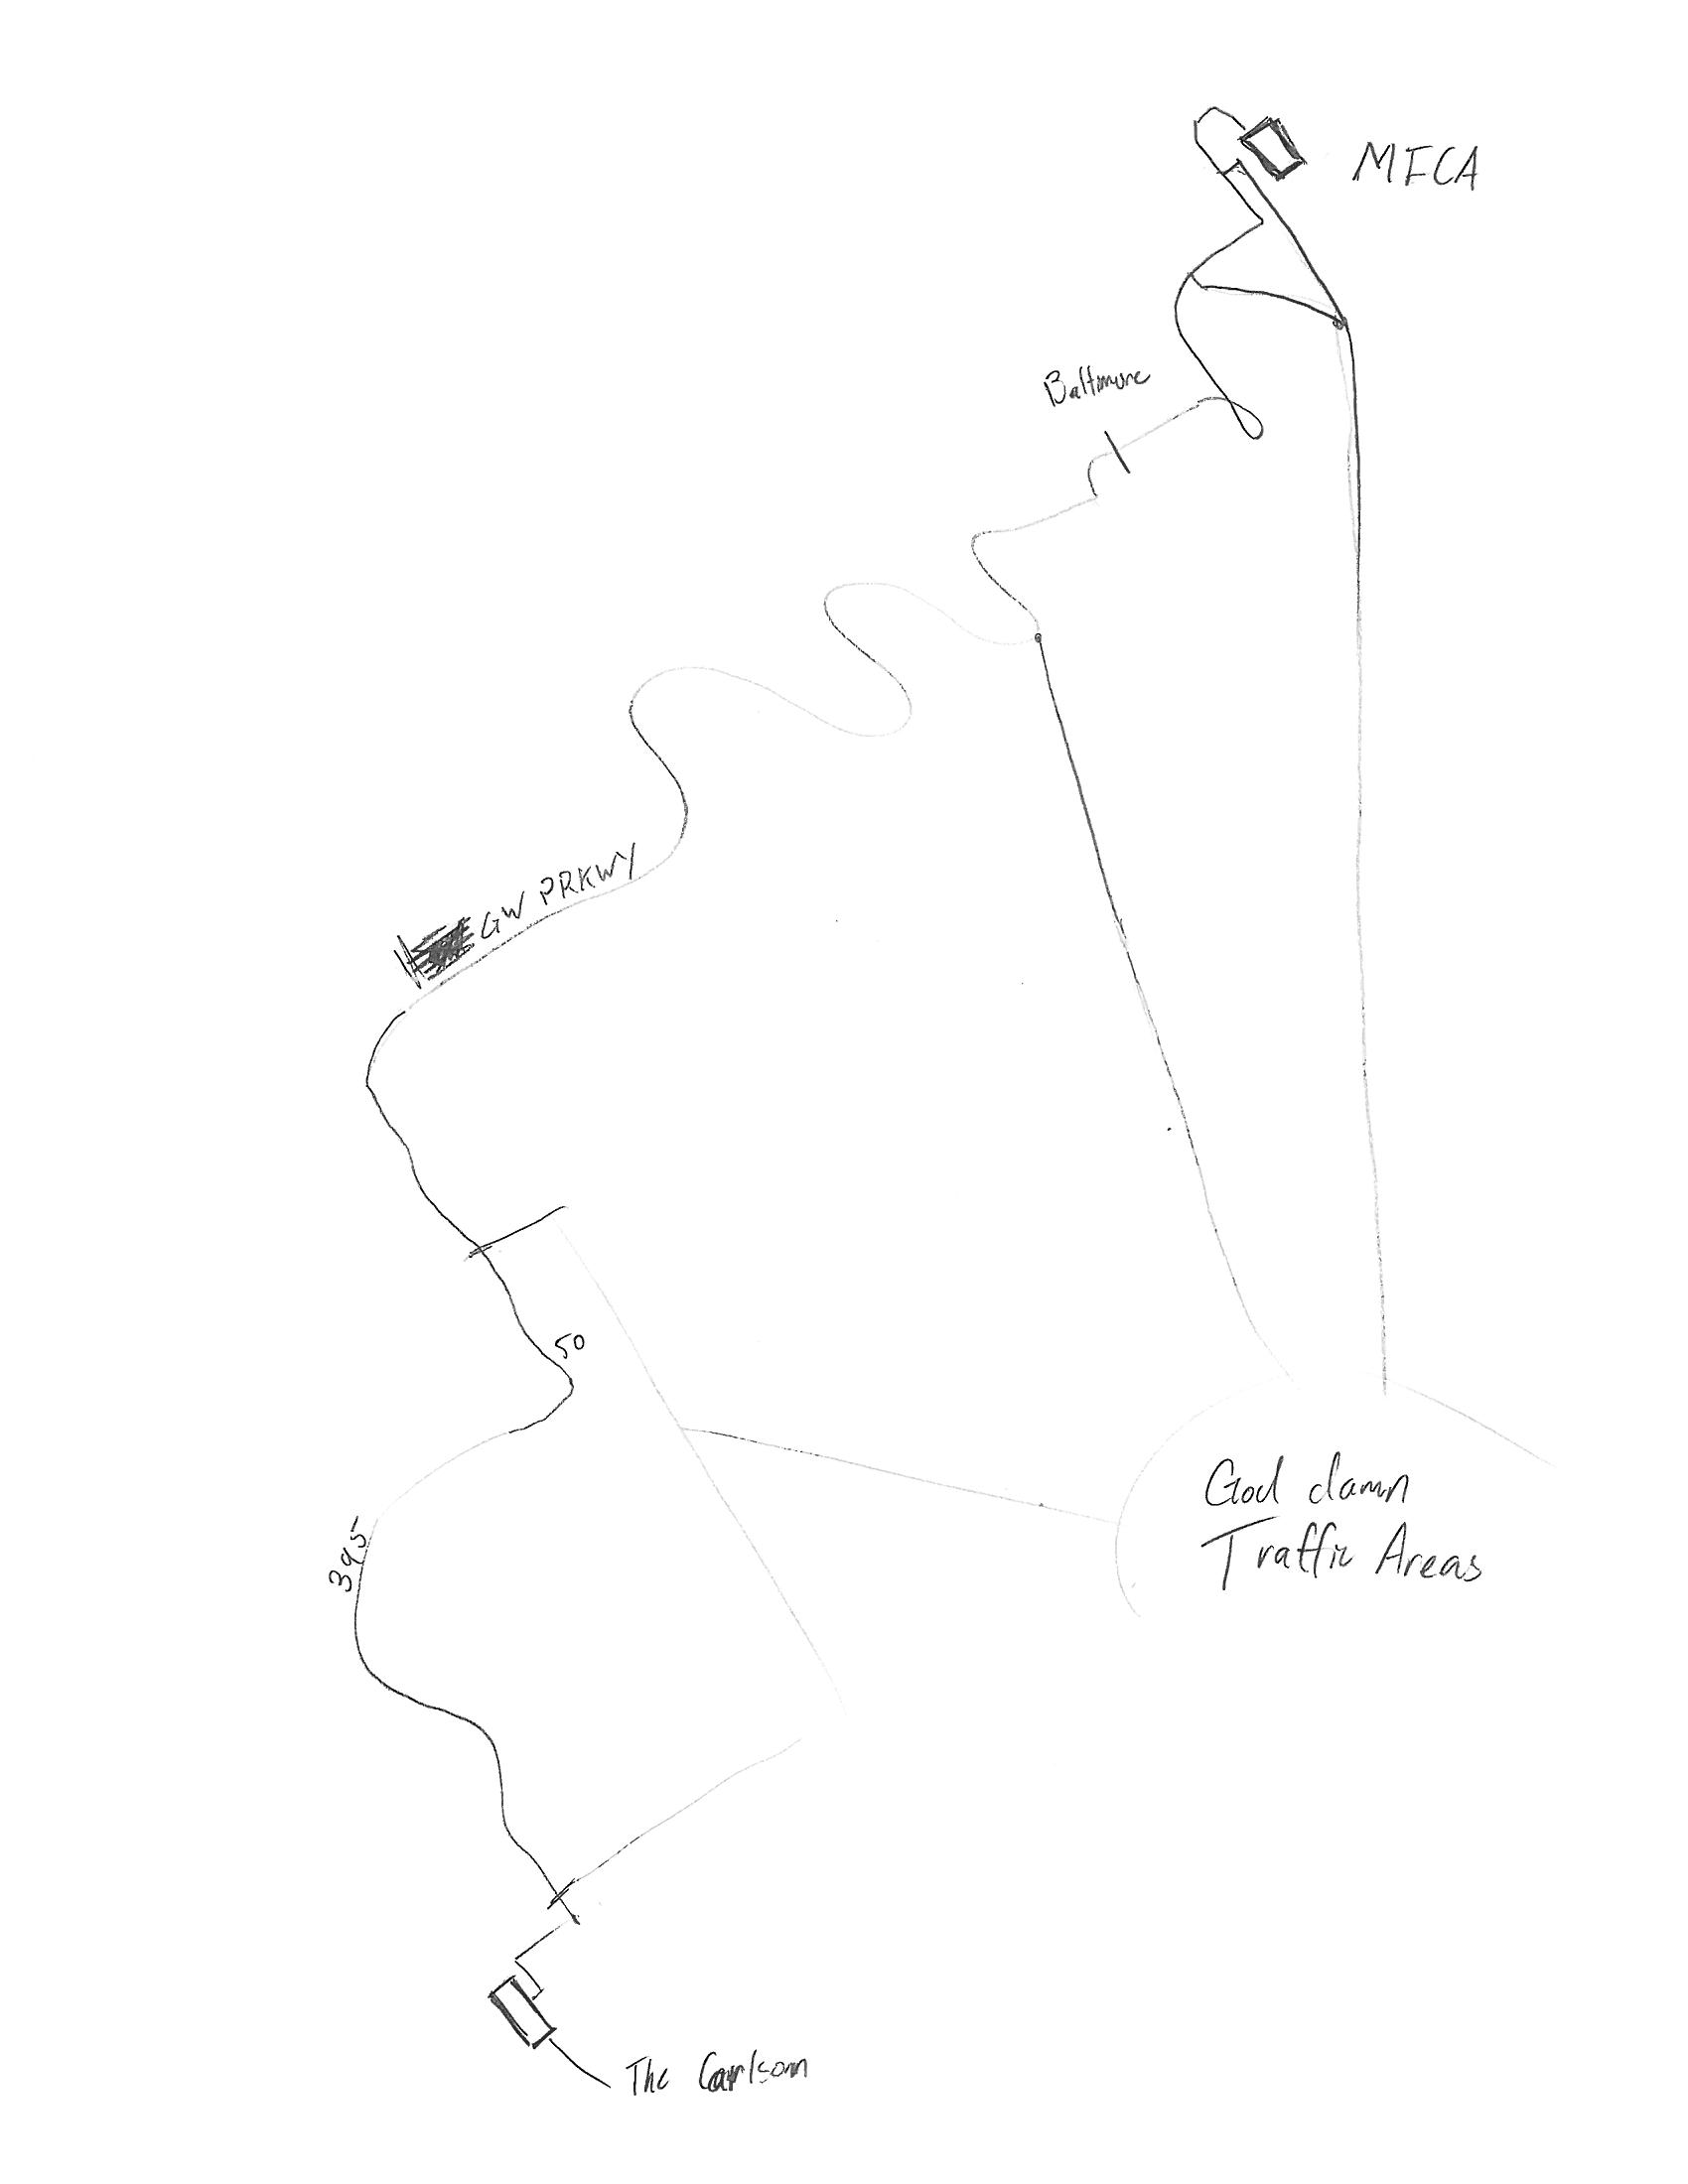 MECA
Baltimore
GW PRKWY
50
God damn
Traffic Areas
395
The Carlson